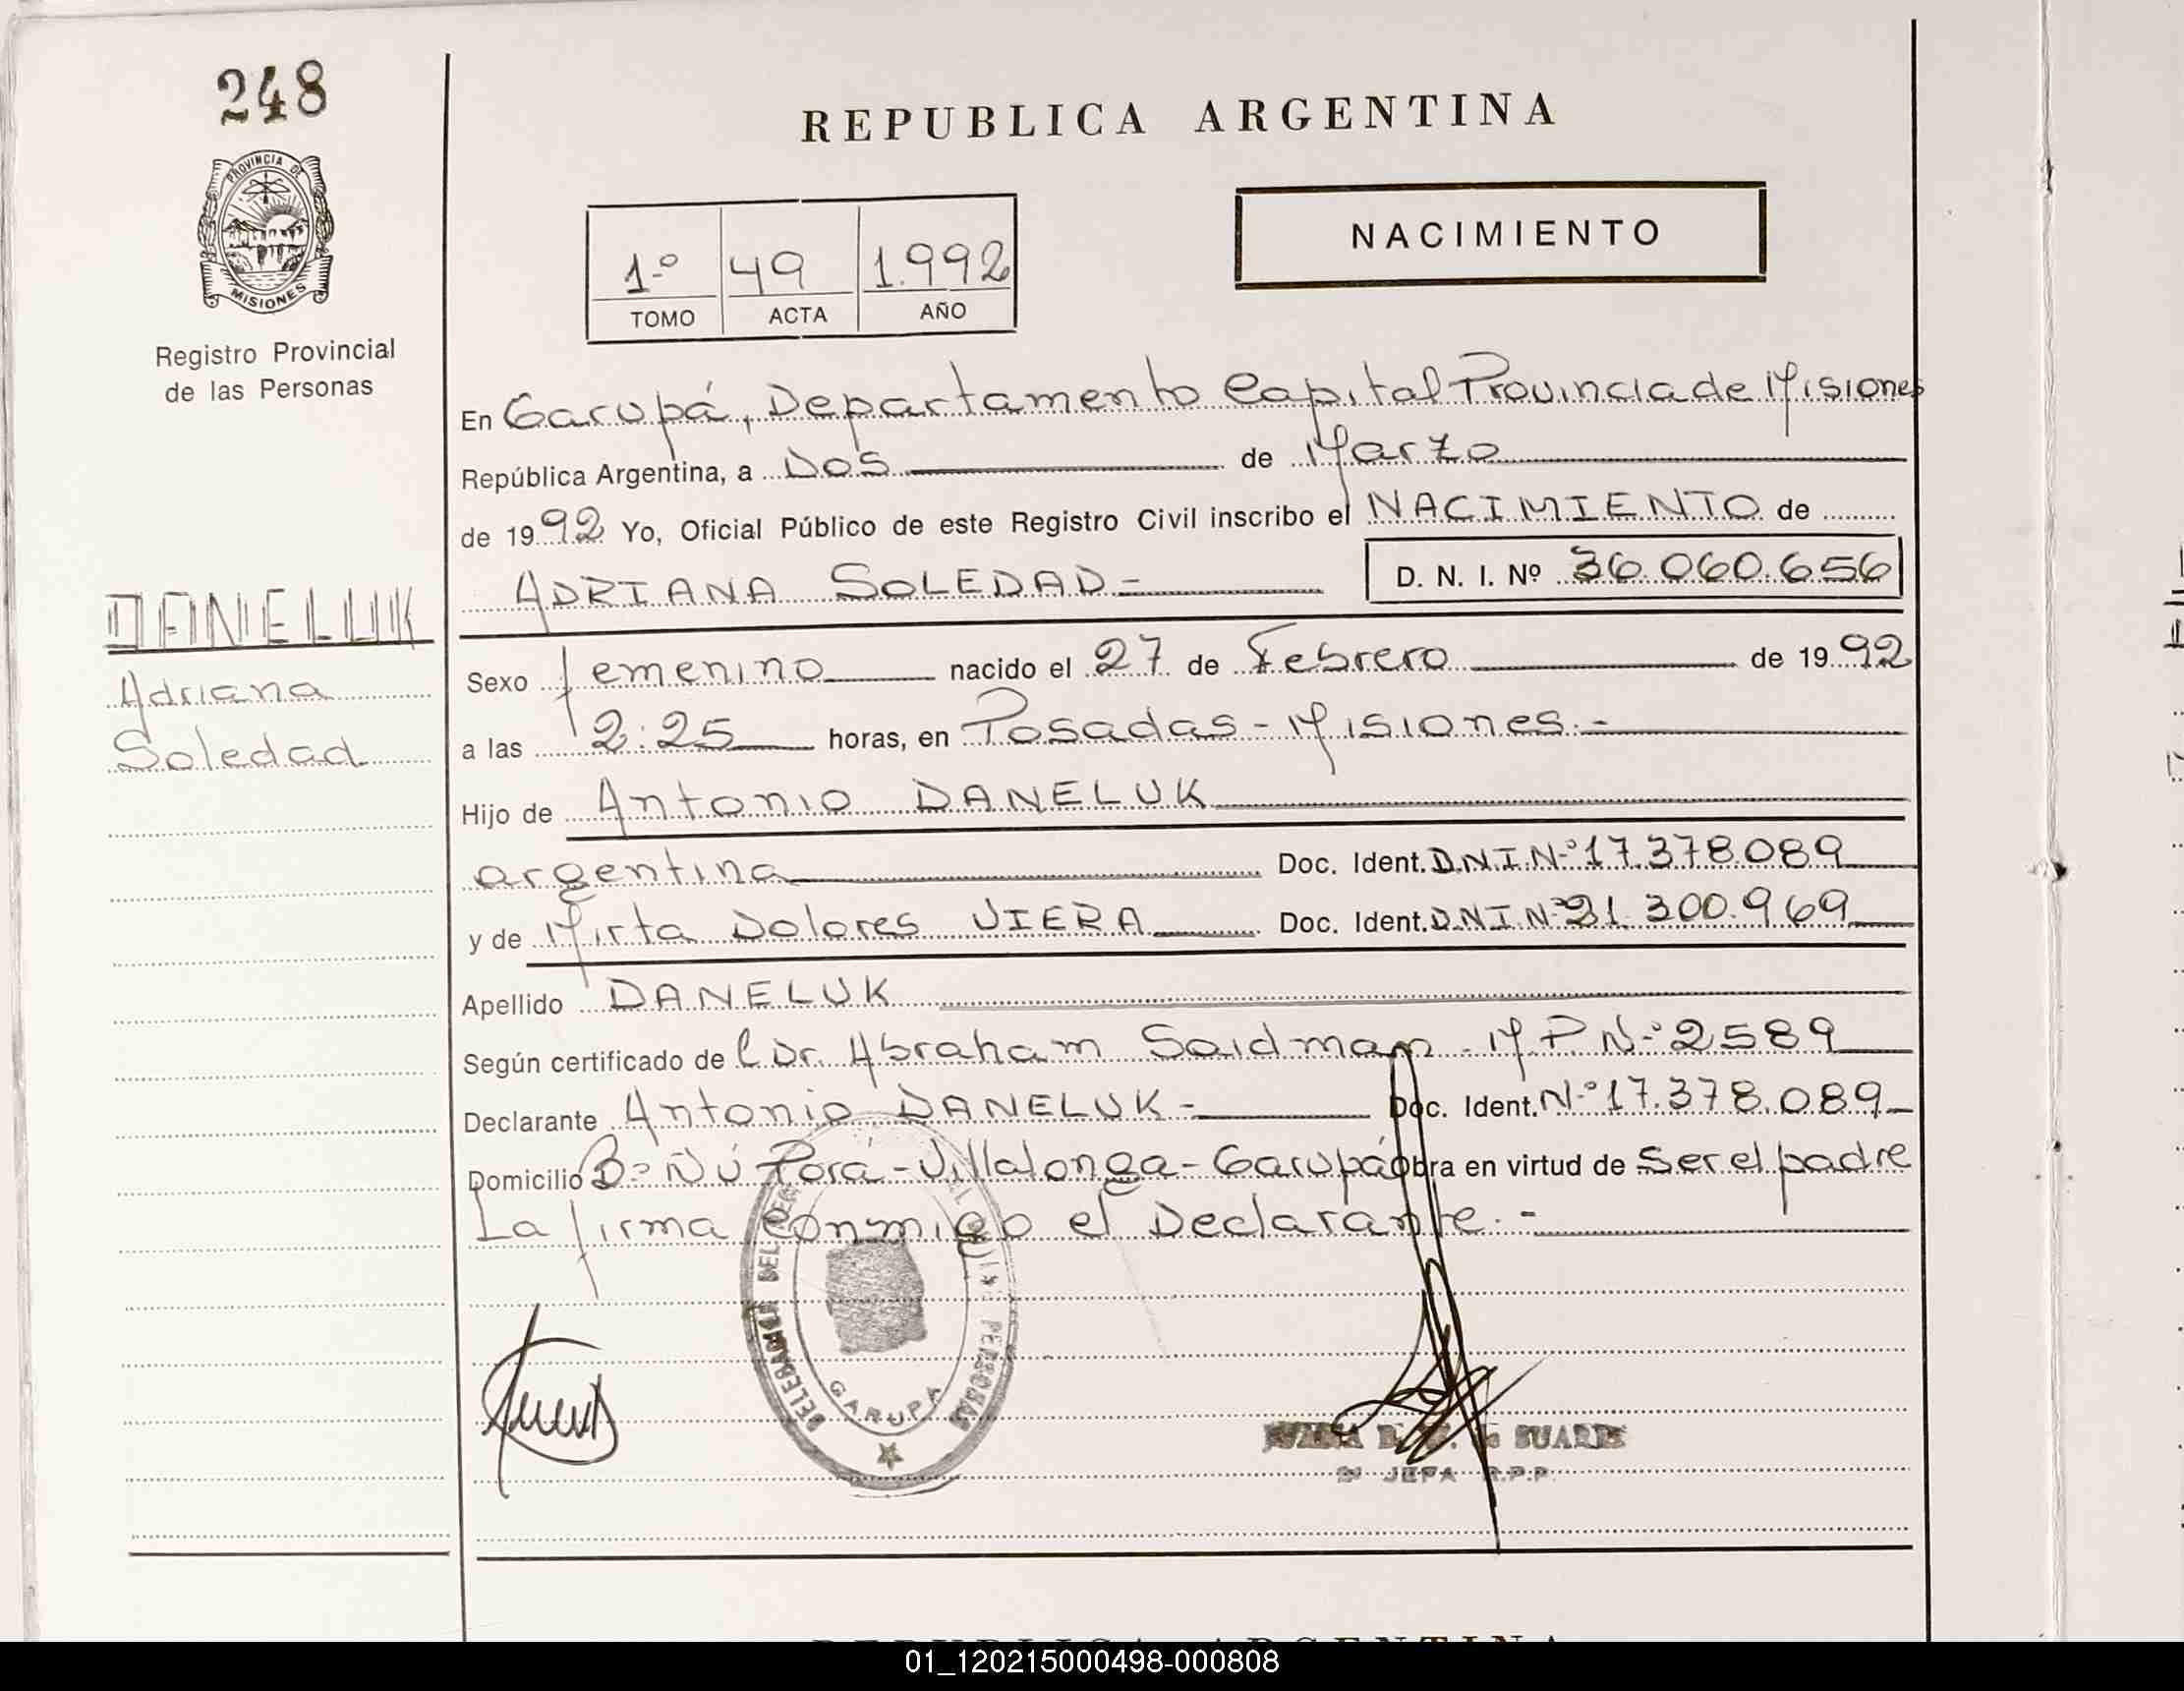 248
REPUBLICA ARGENTINA
PROVINCIA DE
MISIONES
NACIMIENTO
1-º 49 1.992
TOMO ACTA AÑO
Registro Provincial
de las Personas
En Garupá, Departamento Capital Provincia de Misiones
República Argentina, a Dos de Marzo
de 1992 Yo, Oficial Público de este Registro Civil inscribo el NACIMIENTO de
ADRIANA SOLEDAD - D. N. I. Nº 36.060.656
DANELUK
Adriana
Soledad
Sexo femenino nacido el 27 de Febrero de 1992
a las 2:25 horas, en Posadas - Misiones.-
Hijo de Antonio DANELUK
argentina Doc. Ident. D.N.I.N-º17.378.089
y de Mirta Dolores VIERA Doc. Ident. D.N.I.N-º21.300.969
Apellido DANELUK
Según certificado de Dr. Abraham Saidman - M.P. N-º2589
Declarante Antonio DANELUK - Doc. Ident. N-º17.378.089
Domicilio Bº Ñú Porá - Villalonga - Garupá Obra en virtud de Ser el padre
La firma conmigo el Declarante.-
DELEGACIÓN DEL PERSONAS
GARUPA
SUAREZ
JEFA R.P.P.
REPUBLICA ARGENTINA
01_120215000498-000808